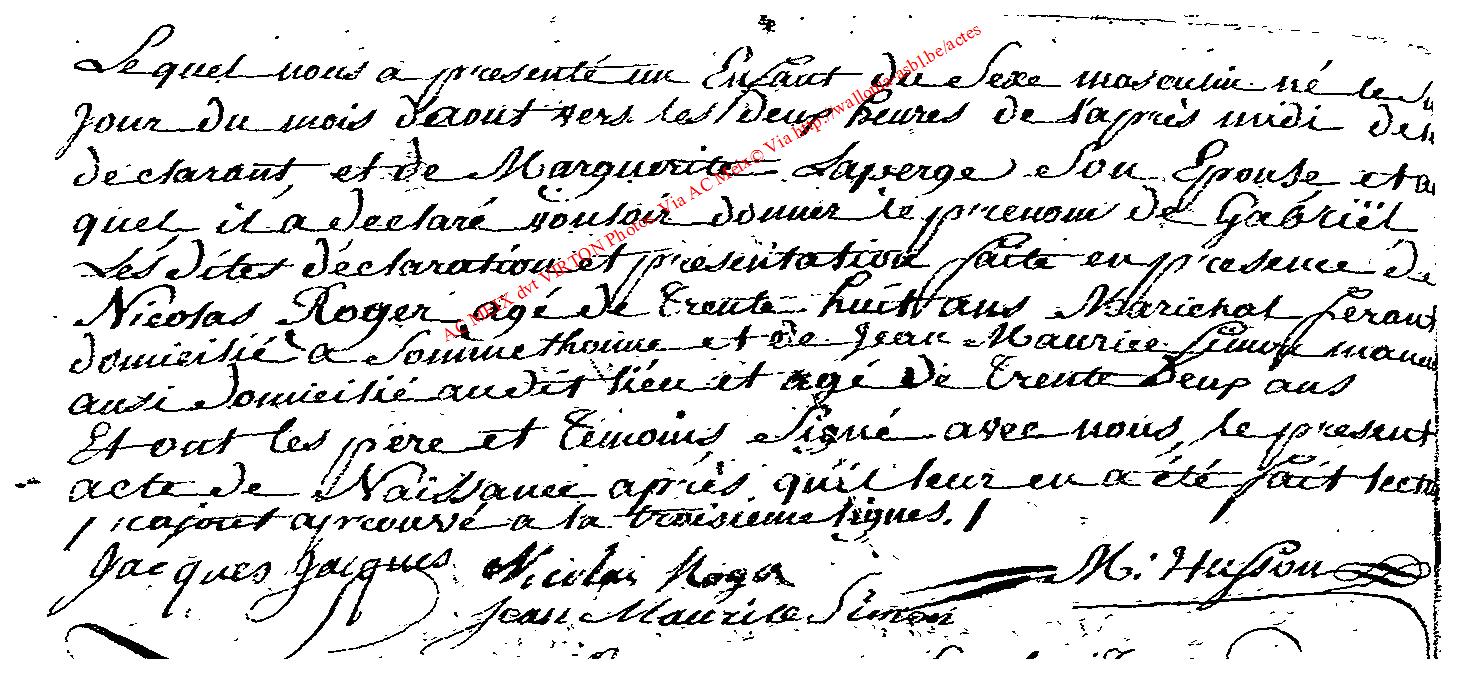 Lequel nous a presenté un Enfant du Sexe masculin né le
Jour du mois d'aout vers les deux heures de l'après midi de
déclarant, et de Marguerite Laperge Son Epouse et a
quel il a declaré vouloir donner le prenom de Gabriël
Les dites déclaration et présentation faite en presence de
Nicolas Roger, agé de trente huit ans Marichal feran
domicilié à Sommethonne et de Jean Maurice Simon
ausi domicilié au dit lieu et agé de trente deux ans
Et ont les père et témoins Signé avec nous, le present
acte de Naissance après qu'il leur en a été fait lectu
/ rajout aprouvé a la troisieme lignes. /
Jacques Jacques Nicolas Roger M. Husson
Jean Maurice Simon
AC MEIX dvt VIRTON Photos Via AC Meix © Via http://wallonia-asbl.be/actes